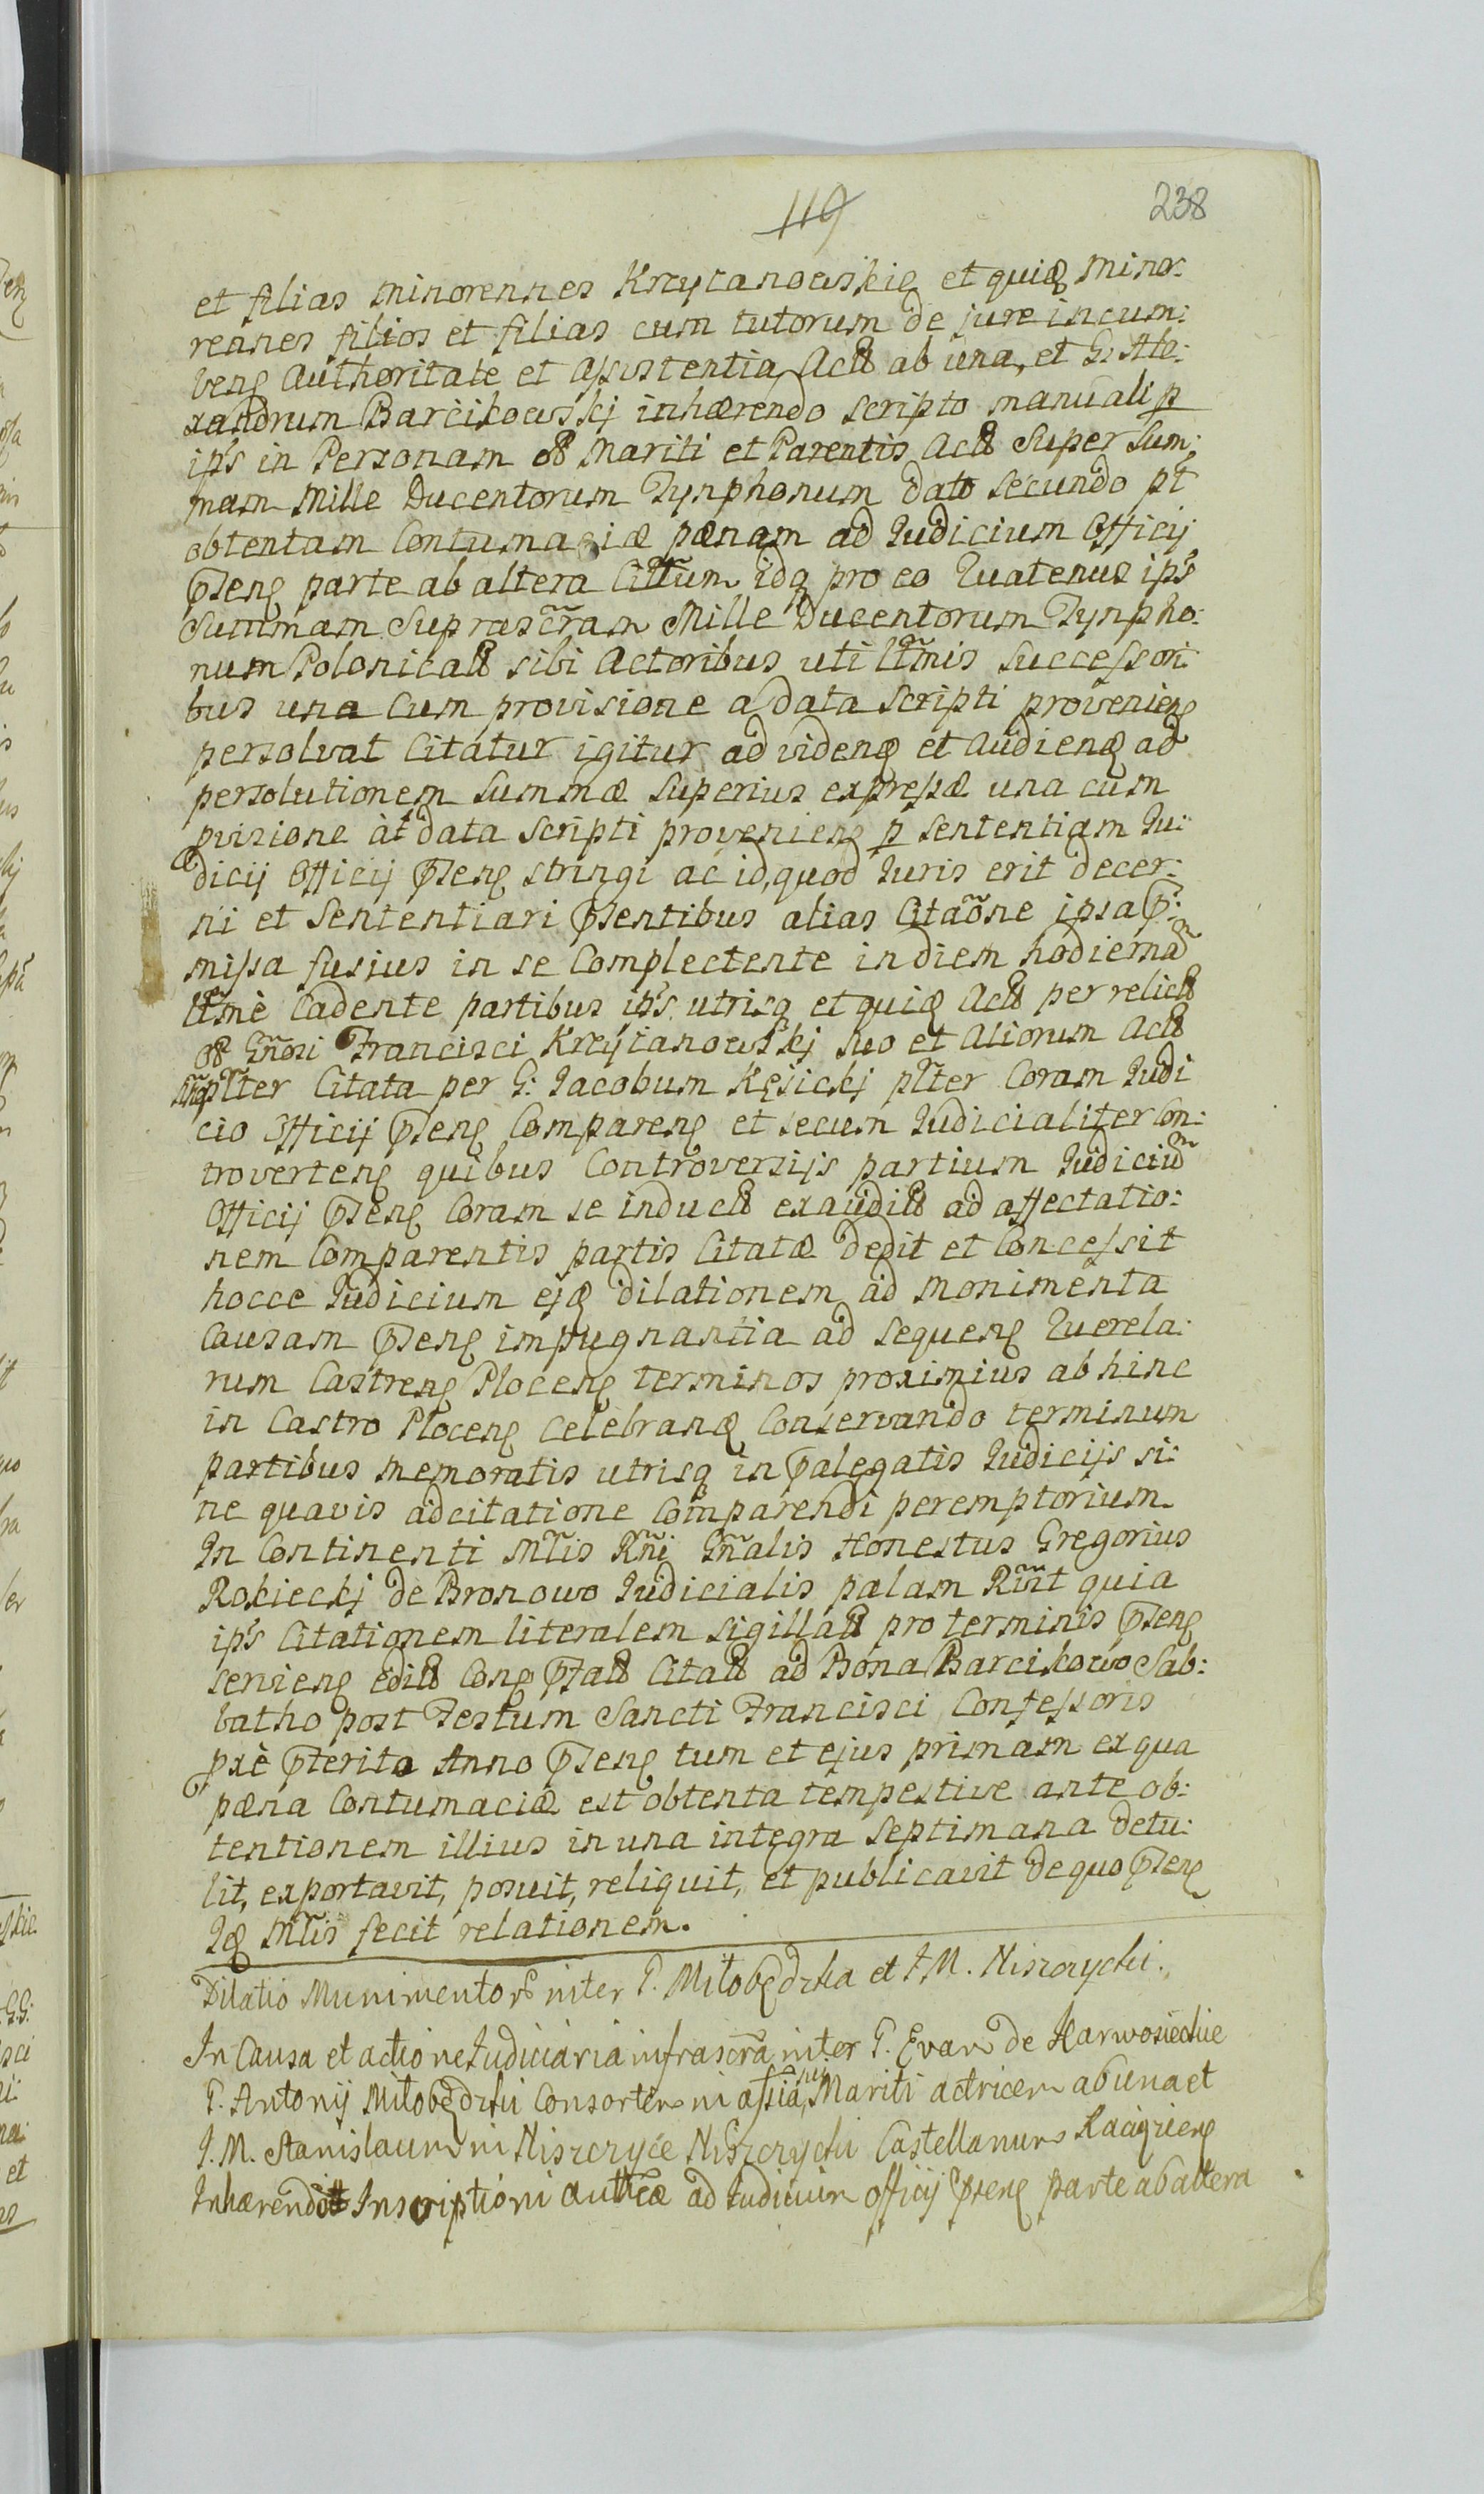 119 238
et filias minorennes Krzyżanowskie et quiq minor:
rennes filios et filias cum tutorum de jure incum:
beng Authoritate et Assistentia Actt ab una, et G: Ale:
xandrum Barcikowskj inhærendo scripto manuali p
ips in Personam ott Mariti et Parentis Actt Super Sum:
mam Mille Ducentorum Tynphonum dato secundo pt
obtentam Contumaciæ pænam ad Judicium Officij
pseng parte ab altera Cittum idq pro eo Quatenus ips
Summam Suprascram Mille Ducentorum Tynpho:
num Polonicatt sibi Actoribus uti lttmis Successori:
bus una cum provisione a data scripti provenieng
persolvat Citatur igitur ad videnq et Audienq ad
persolutionem summæ superius expressæ una cum
pvisione àt data scripti provenieng p sententiam Ju:
dicij Officij pseng stringi ac id, quod Juris erit decer:
ni et Sententiari psentibus alias Citaõne ipsa p:
missa fusius in se Complectente in diem hodierna
lttmè Cadente partibus ips utrisq et quiq Actt per relictt
ott Gnosi Francisci Krzyżanowskj suo et Aliorum Actt
plter Citata per G: Jacobum Kęsickj plter Coram Judi
cio Officij pseng Compareng et secum Judicialiter Con:
troverteng quibus Controversijs partium Judiciu
Officij pseng Coram se inductt exauditt ad affectatio:
nem Comparentis partis Citatæ dedit et Concessit
hocce Judicium ejq dilationem ad monimenta
Causam pseng impugnantia ad sequeng Querela:
rum Castreng Ploceng terminos proximius abhinc
in Castro Ploceng Celebranq Conservando terminum
partibus memoratis utrisq in palegatis Judicijs si:
ne quavis adcitatione Comparendi peremptorium
In Continenti Mtis Rni Gnalis Honestus Gregorius
Rokieckj de Bronowo Judicialis palam Rivit quia
ips Citationem literalem sigillatt pro terminis pseng
servieng editt Cong psatt Citatt ad Bona Barcikowo Sab:
batho post Festum Sancti Francisci Confessoris
pxè pterito Anno pseng tum et ejus primam ex qua
pæna Contumaciæ est obtenta tempestive ante ob:
tentionem illius in una integra Septimana detu:
lit, exportavit, posuit, reliquit, et publicavit de quo pseng
Iq Mtis fecit relationem.
Dilatio Munimentor inter G. Miłobędzka et J M. Niszczycki.
In Causa et actione Judiciaria infrascra inter G. Evam de Karwosieckie
G. Antonij Miłobędzki Consortem in assia sui Mariti actricem ab una et
J. M. Stanislaum in Niszczyce Niszczycki Castellanum Raciązieng
Inhærendo Inscriptioni autticæ ad Judicium officij pseng parte ab altera